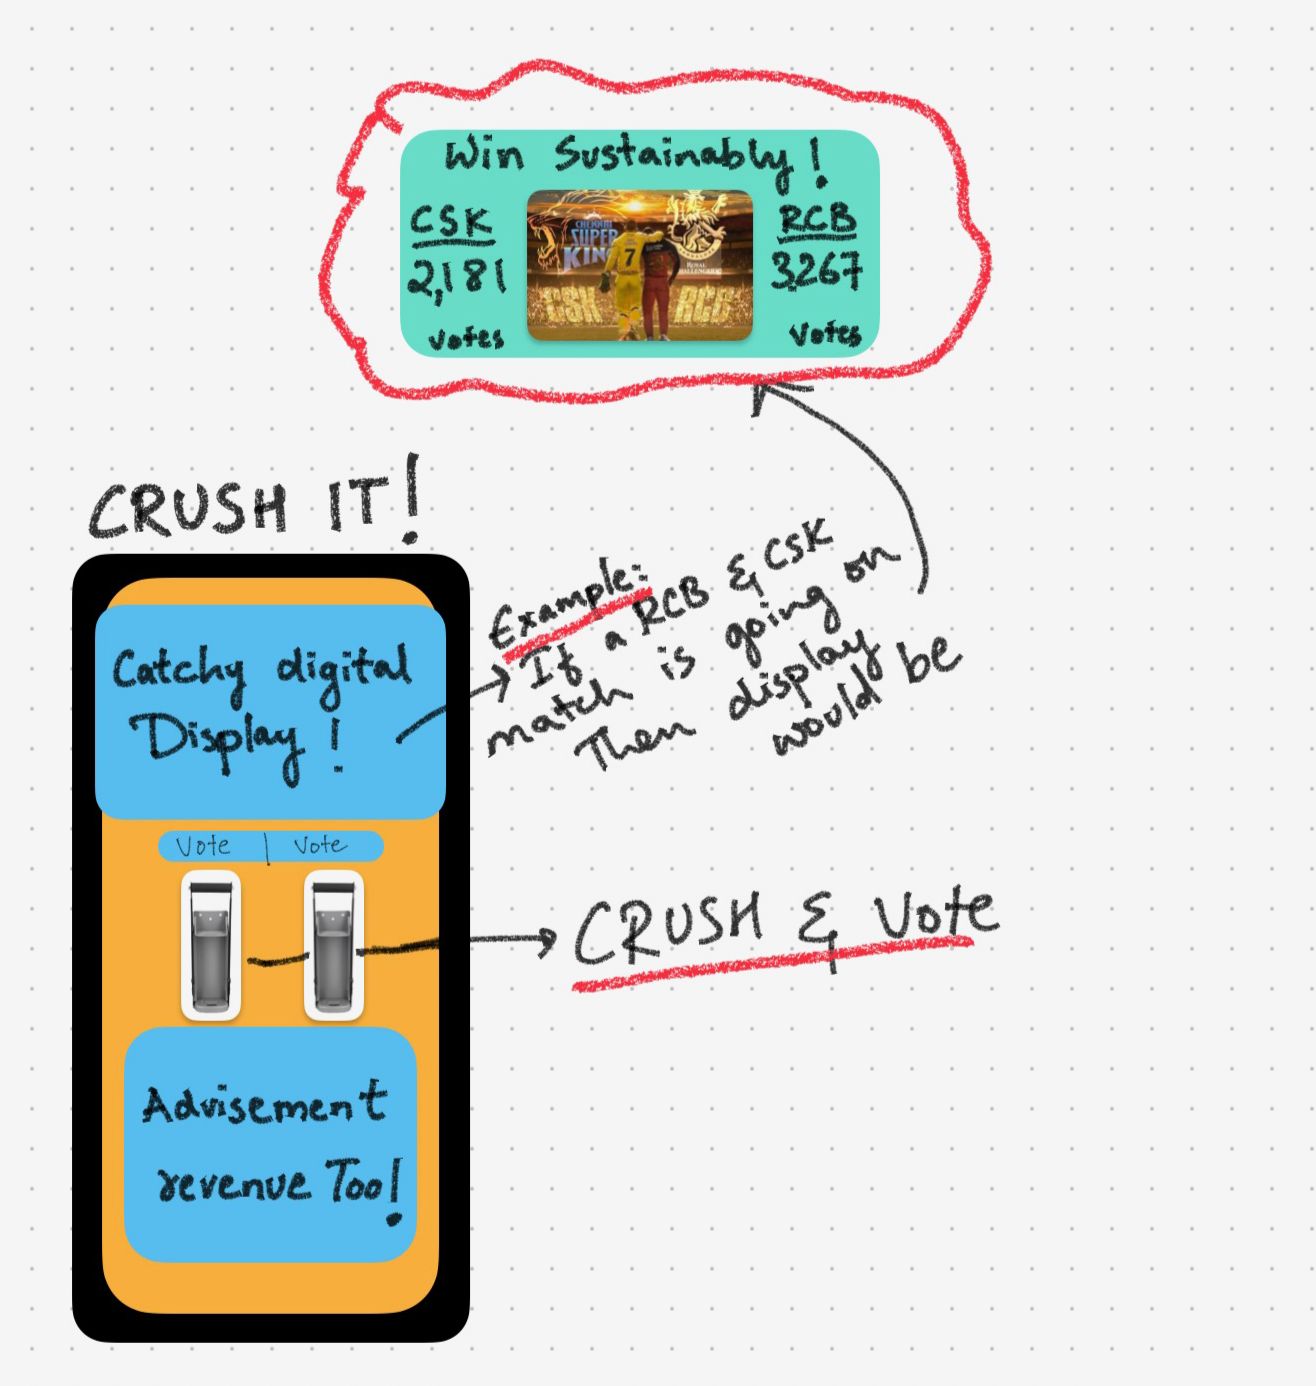 Win Sustainably!
CSK
2,181
votes
CHENNAI
SUPER
KING
7
ROYAL
CHALLENGERS
CSK
RCB
RCB
3267
Votes
CRUSH IT!
Catchy digital
Display!
Example:
If a RCB & CSK
match is going on
Then display
would be
Vote | Vote
CRUSH & Vote
Advisement
revenue Too!